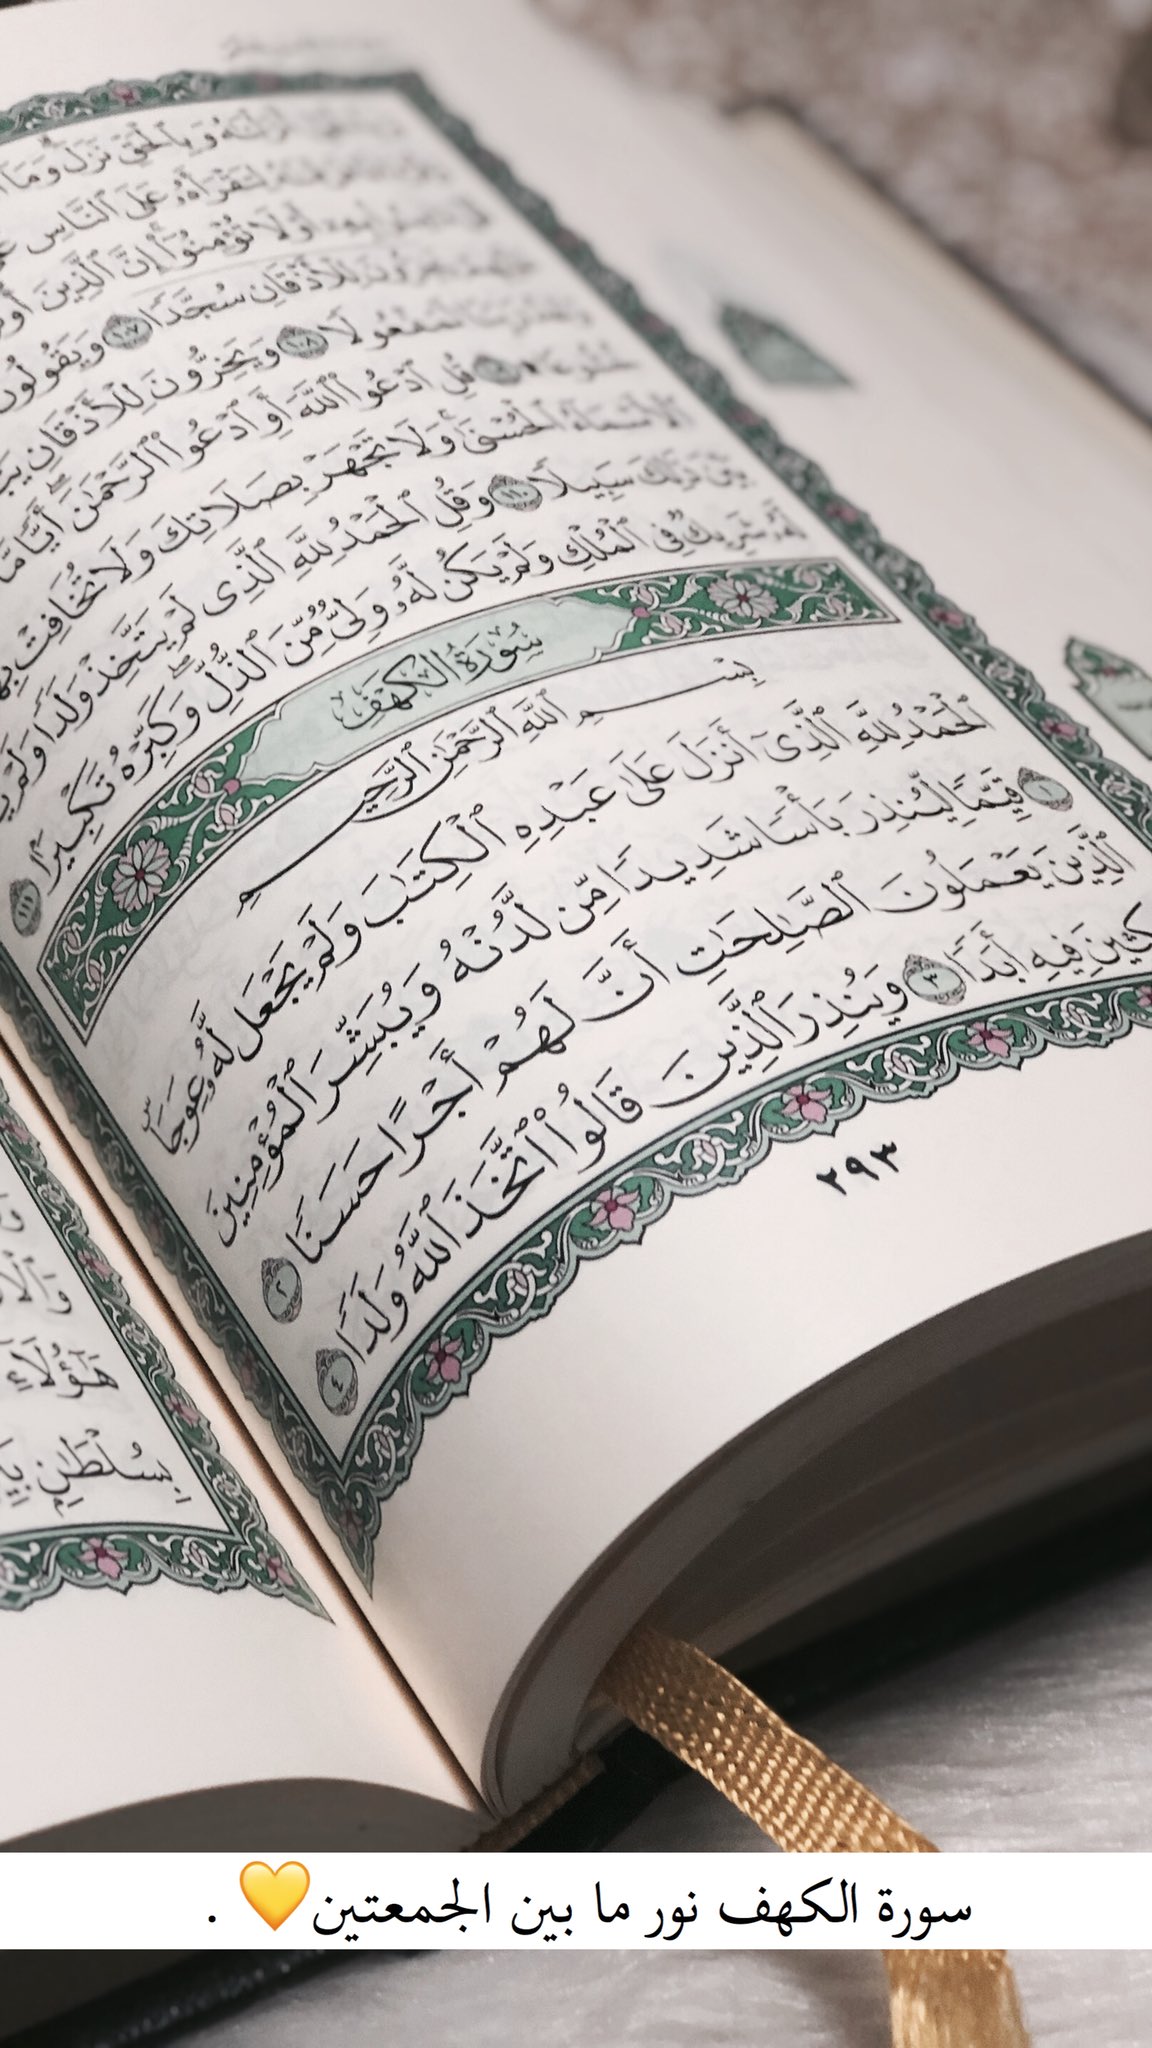 وَبِالْحَقِّ نَزَلَ وَمَا
لِتَقْرَأَهُ عَلَى النَّاسِ
أَوْ لَا تُؤْمِنُوا إِنَّ الَّذِينَ
لِلْأَذْقَانِ سُجَّدًا ١٠٧ وَيَقُولُونَ
لَمَفْعُولًا ١٠٨ وَيَخِرُّونَ لِلْأَذْقَانِ
قُلِ ادْعُوا اللَّهَ أَوِ ادْعُوا الرَّحْمَٰنَ أَيًّا مَّا
الْأَسْمَاءُ الْحُسْنَىٰ وَلَا تَجْهَرْ بِصَلَاتِكَ وَلَا تُخَافِتْ بِهَا
بَيْنَ ذَٰلِكَ سَبِيلًا ١١٠ وَقُلِ الْحَمْدُ لِلَّهِ الَّذِي لَمْ يَتَّخِذْ وَلَدًا وَلَمْ
لَّهُ شَرِيكٌ فِي الْمُلْكِ وَلَمْ يَكُن لَّهُ وَلِيٌّ مِّنَ الذُّلِّ وَكَبِّرْهُ تَكْبِيرًا ١١١
سُورَةُ الْكَهْفِ
بِسْمِ اللَّهِ الرَّحْمَٰنِ الرَّحِيمِ
الْحَمْدُ لِلَّهِ الَّذِي أَنزَلَ عَلَىٰ عَبْدِهِ الْكِتَابَ وَلَمْ يَجْعَل لَّهُ عِوَجَا ۜ
١ قَيِّمًا لِّيُنذِرَ بَأْسًا شَدِيدًا مِّن لَّدُنْهُ وَيُبَشِّرَ الْمُؤْمِنِينَ
الَّذِينَ يَعْمَلُونَ الصَّالِحَاتِ أَنَّ لَهُمْ أَجْرًا حَسَنًا ٢
كِثِينَ فِيهِ أَبَدًا ٣ وَيُنذِرَ الَّذِينَ قَالُوا اتَّخَذَ اللَّهُ وَلَدًا ٤
٢٩٣
هَٰؤُلَاءِ
بِسُلْطَانٍ
سورة الكهف نور ما بين الجمعتين💛 .